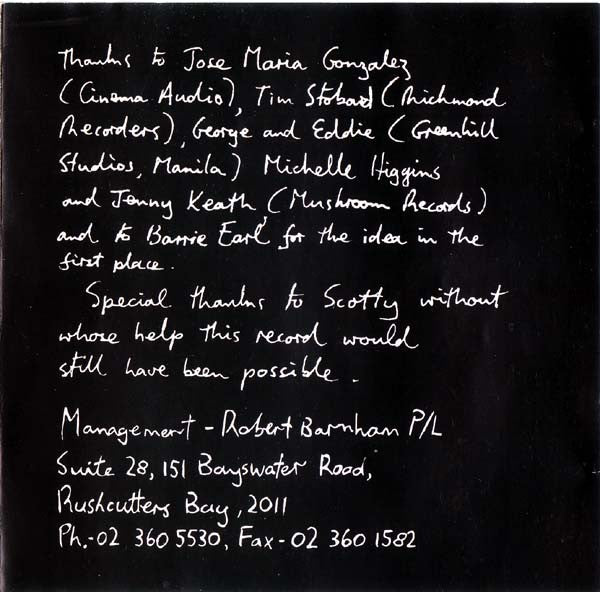 Thanks to Jose Maria Gonzalez
(Cinema Audio), Tim Stobard (Richmond
Recorders), George and Eddie (Greenhill
Studios, Manila) Michelle Higgins
and Jenny Keath, (Mushroom Records)
and to Barrie Earl for the idea in the
first place.
Special thanks to Scotty without
whose help this record would
still have been possible.
Management - Robert Barnham P/L
Suite 28, 151 Bayswater Road,
Rushcutters Bay, 2011
Ph.-02 360 5530, Fax - 02 360 1582